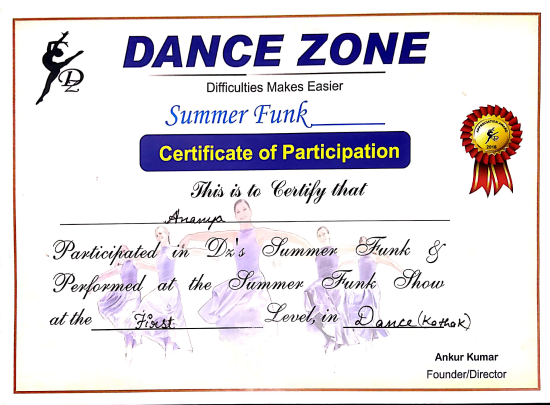 DZ
DANCE ZONE
Difficulties Makes Easier
Summer Funk
Certificate of Participation
This is to Certify that
Ananya
Participated in Dz's Summer Funk &
Performed at the Summer Funk Show
at the First Level, in Dance (Kathak)
2018
Ankur Kumar
Founder/Director